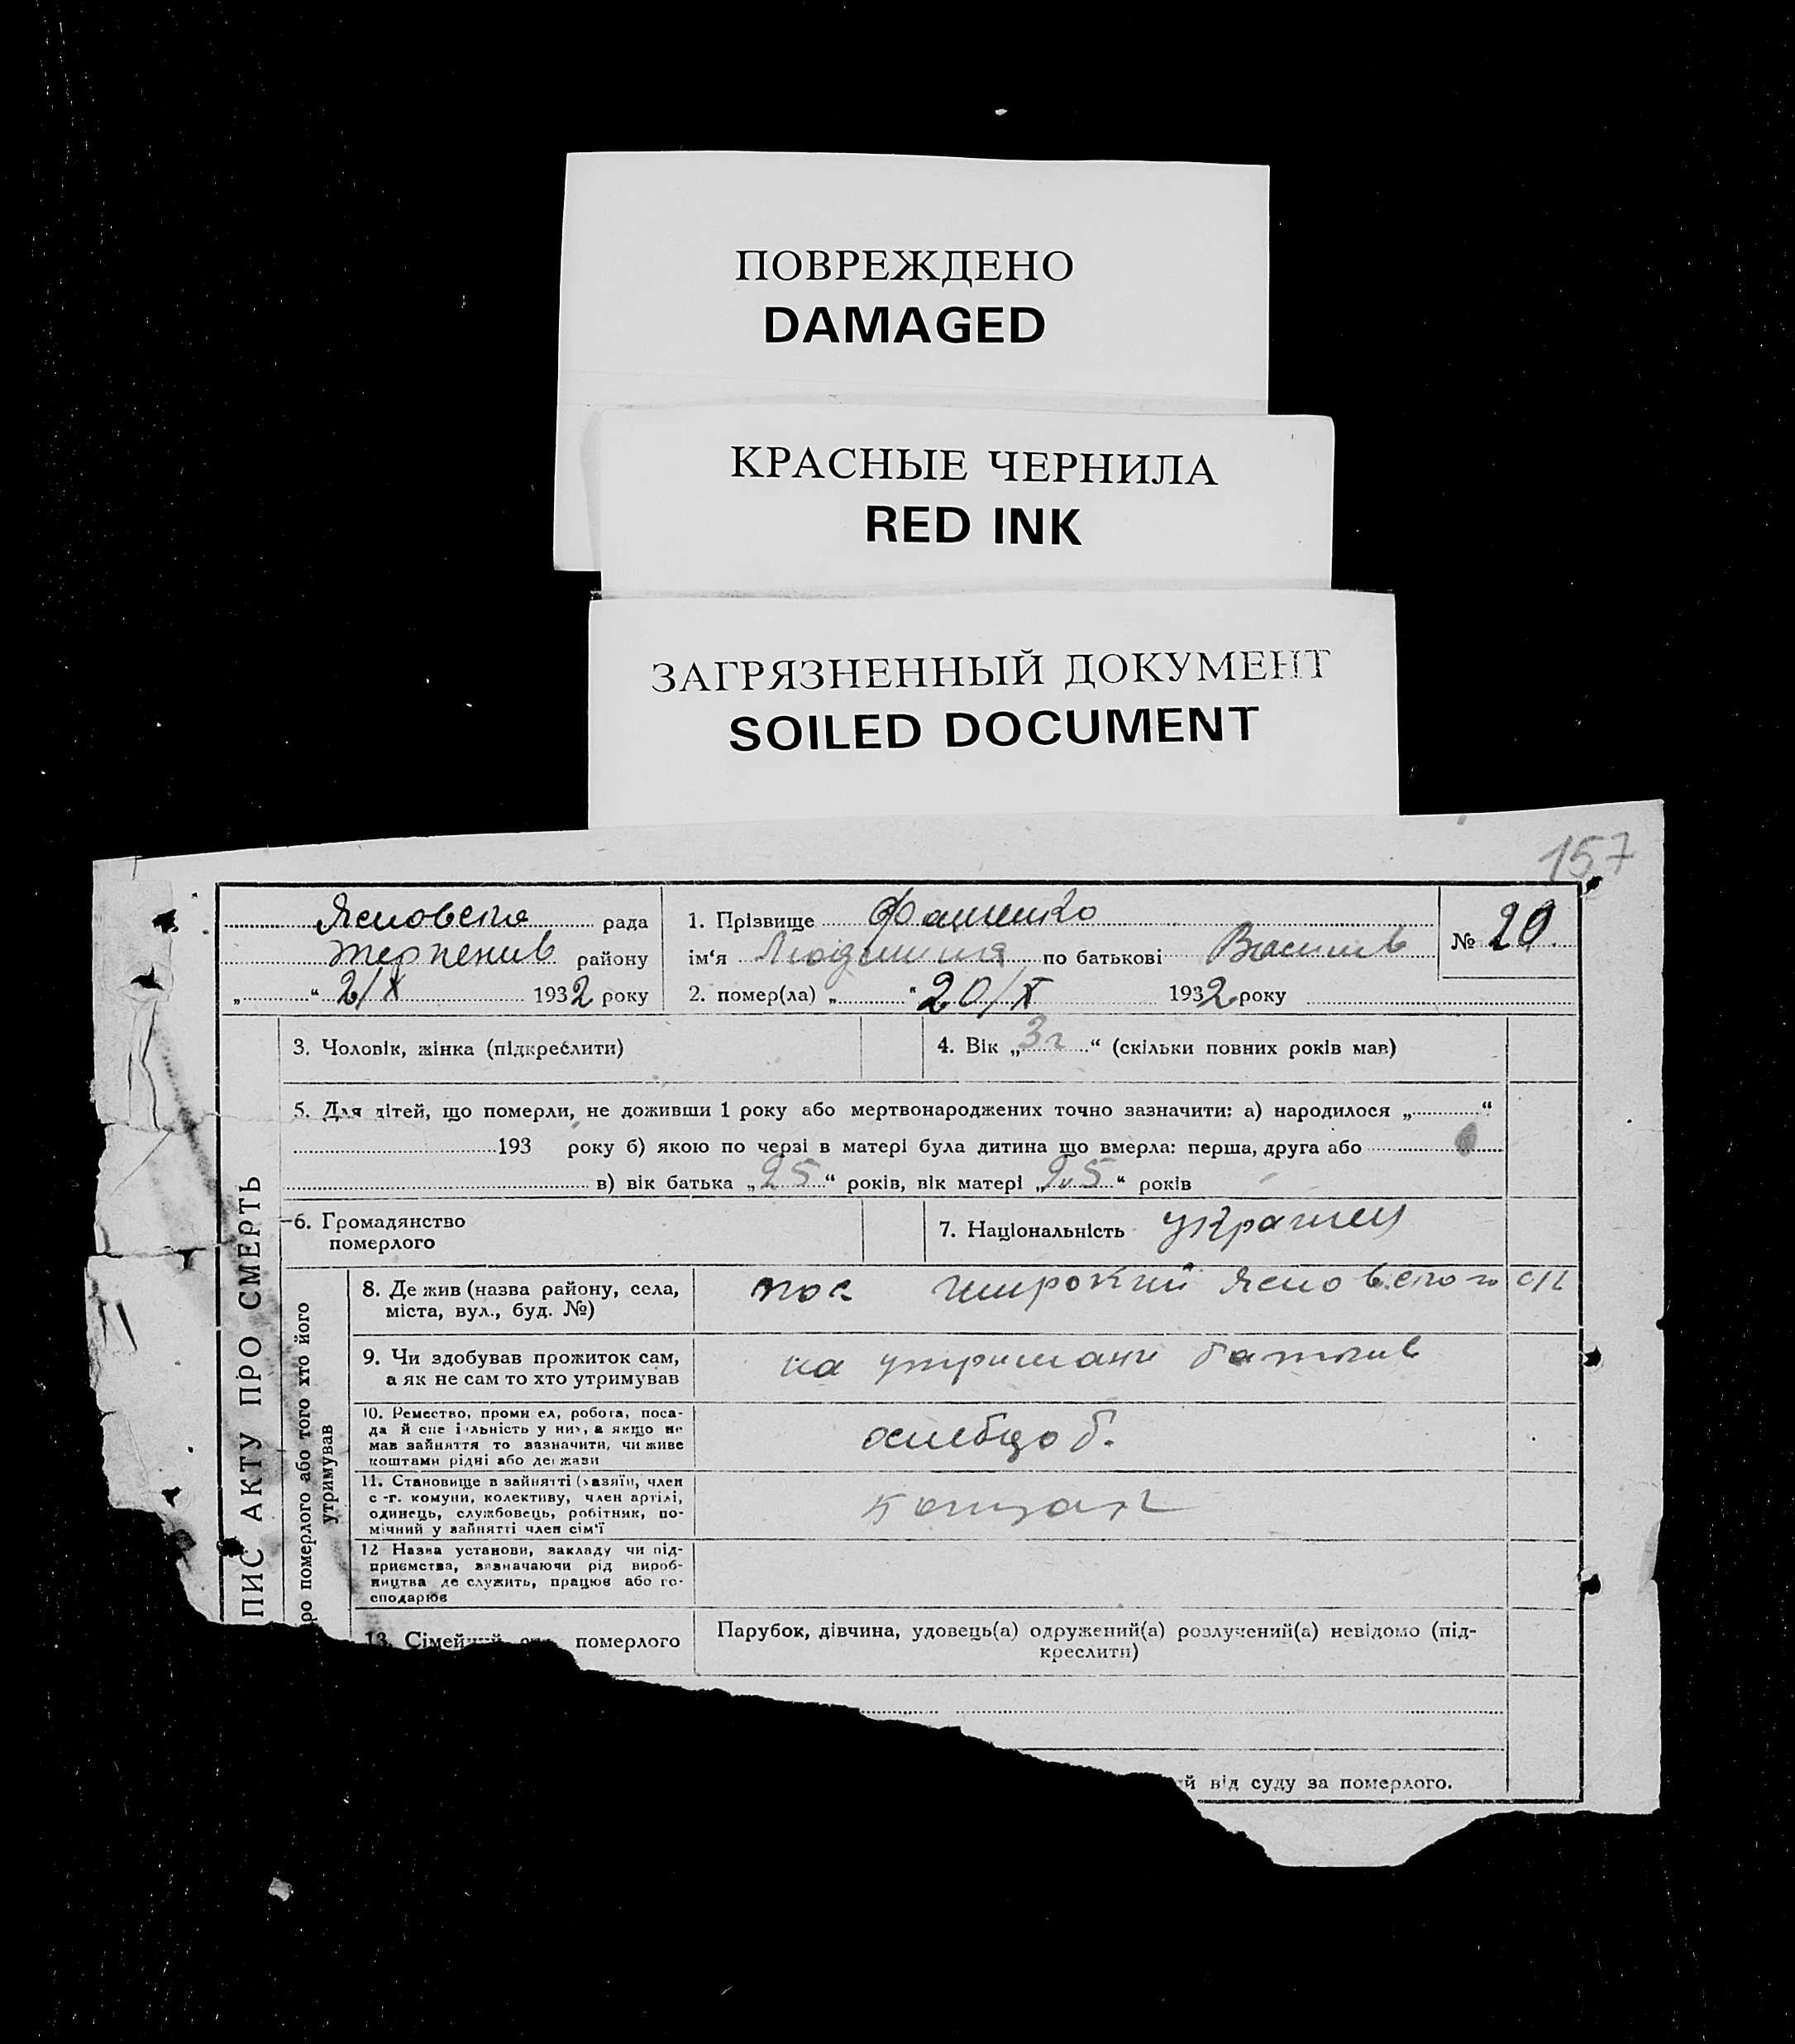 ПОВРЕЖДЕНО
DAMAGED
КРАСНЫЕ ЧЕРНИЛА
RED INK
ЗАГРЯЗНЕННЫЙ ДОКУМЕНТ
SOILED DOCUMENT
157
рада
району
„ “ 2/X 1932 року
1. Прізвище
ім‘я Людмила по батькові Васил
2. помер(ла) „ “ 20/X 1932 року
№ 20
3. Чоловік, жінка (підкреслити)
4. Вік „3г“ (скільки повних років мав)
5. Для дітей, що померли, не доживши 1 року або мертвонароджених точно зазначити: а) народилося „ “
193 року б) якою по черзі в матері була дитина що вмерла: перша, друга або
в) вік батька „25“ років, вік матері „25“ років
6. Громадянство
померлого
7. Національність украинец
ПИС АКТУ ПРО СМЕРТЬ
ро померлого або того хто його
утримував
8. Де жив (назва району, села,
міста, вул., буд. №)
пос Широкий
9. Чи здобував прожиток сам,
а як не сам то хто утримував
на утримані батьків
10. Ремество, проми ел, робота, поса-
да й спе і льність у них, а якщо не
мав зайняття то зазначити, чи живе
коштами рідні або держави
11. Становище в зайнятті (хазяїн, член
с -г. комуни, колективу, член артілі,
одинець, службовець, робітник, по-
мічний у зайнятті член сім‘ї
12 Назва установи, закладу чи під-
приємства, зазначаючи рід вироб-
ництва де служить, працює або го-
сподарює
13. Сімейний померлого
Парубок, дівчина, удовець(а) одружений(а) розлучений(а) невідомо (під-
креслити)
й від суду за померлого.